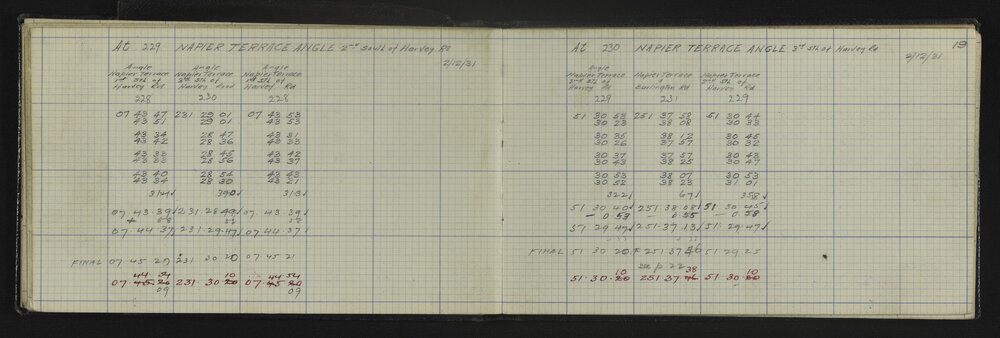 At 229 NAPIER TERRACE ANGLE 2nd South of Harvey Rd
2/12/31
Angle Angle Angle
Napier Terrace Napier Terrace Napier Terrace
1st Sth of 3rd Sth of 1st Sth of
Harvey Rd Harvey Road Harvey Rd
228 230 228
07 43 47 231 29 01 07 43 53
43 51 29 01 43 53
43 34 28 47 43 31
43 42 28 36 43 33
43 33 28 45 43 42
43 33 28 56 43 37
43 40 28 54 43 43
43 34 28 30 43 21
314√ 390√ 313√
07 43 39√ 231·28·49√ 07 43·39√
+ 58
07·44 37√ 231·29·47√ 07 44·37√
FINAL 07 45 20 231 30 20 07 45 21
44 54 10 44 54
07·45·20 231·30 20 07·45 20
09 09
19
At 230 NAPIER TERRACE ANGLE 3rd Sth of Harvey Rd
2/12/31
Angle
Napier Terrace Napier Terrace Napier Terrace
2nd Sth of & 2nd Sth of
Harvey Rd Burlington Rd Harvey Rd
229 231 229
51 30 53 251 37 53 51 30 44
30 23 38 08 30 33
30 35 38 12 30 45
30 26 37 57 30 32
30 37 37 57 30 43
30 43 38 25 30 47
30 53 38 07 30 53
30 52 38 23 31 01
322√ 67√ 358√
51 30 40√ 251 38 08√ 51 30 45√
- 0 53 - 0 55 - 0 58
51 29·47√ 251·37·13√ 51·29·47√
FINAL 51 30 20 251 37 46 51 29·25
see p 22
10 38 10
51·30·20 251 37 46 51 30·20